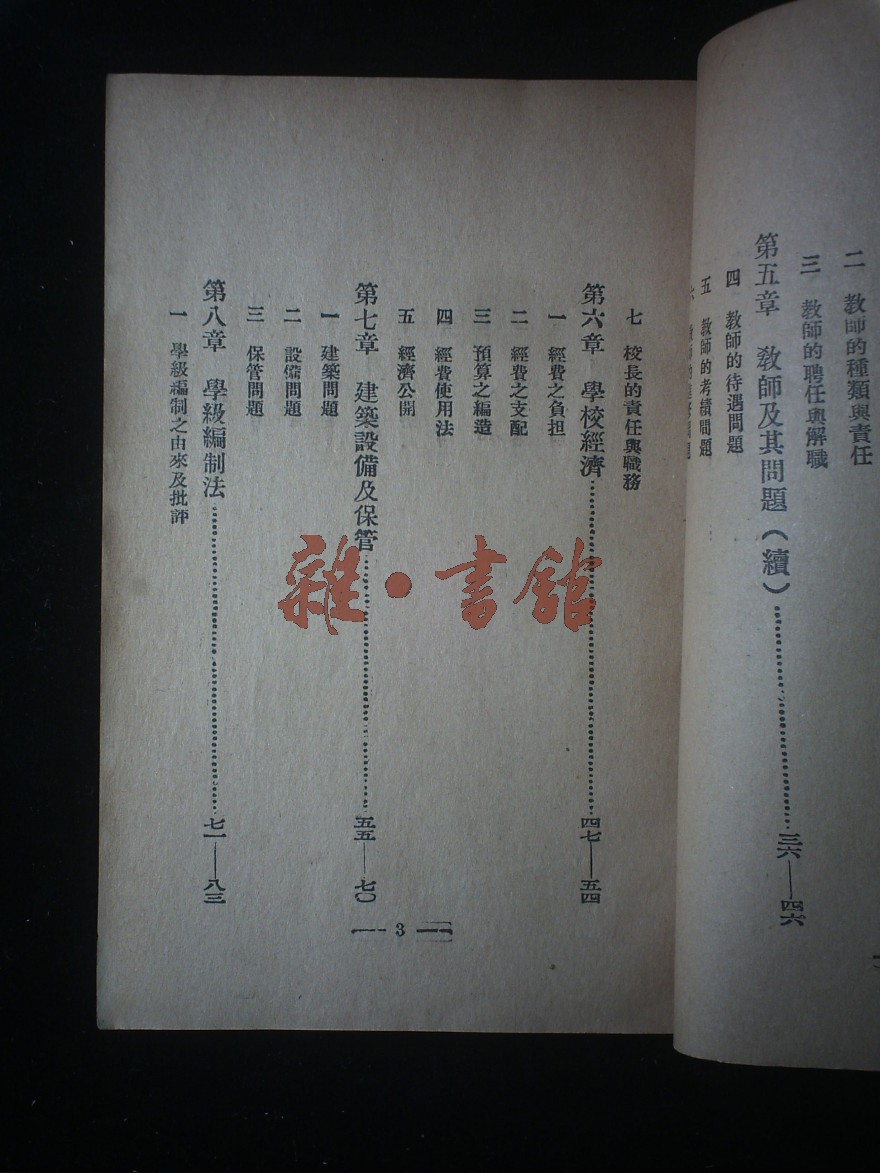 二 教師的種類與責任
三 教師的聘任與解職
第五章 教師及其問題（續）……三六——四六
四 教師的待遇問題
五 教師的考績問題
七 校長的責任與職務
第六章 學校經濟……四七——五四
一 經費之負担
二 經費之支配
三 預算之編造
四 經費使用法
五 經濟公開
第七章 建築設備及保管……五五——七〇
一 建築問題
二 設備問題
三 保管問題
第八章 學級編制法……七一——八三
一 學級編制之由來及批評
3
雜·書館